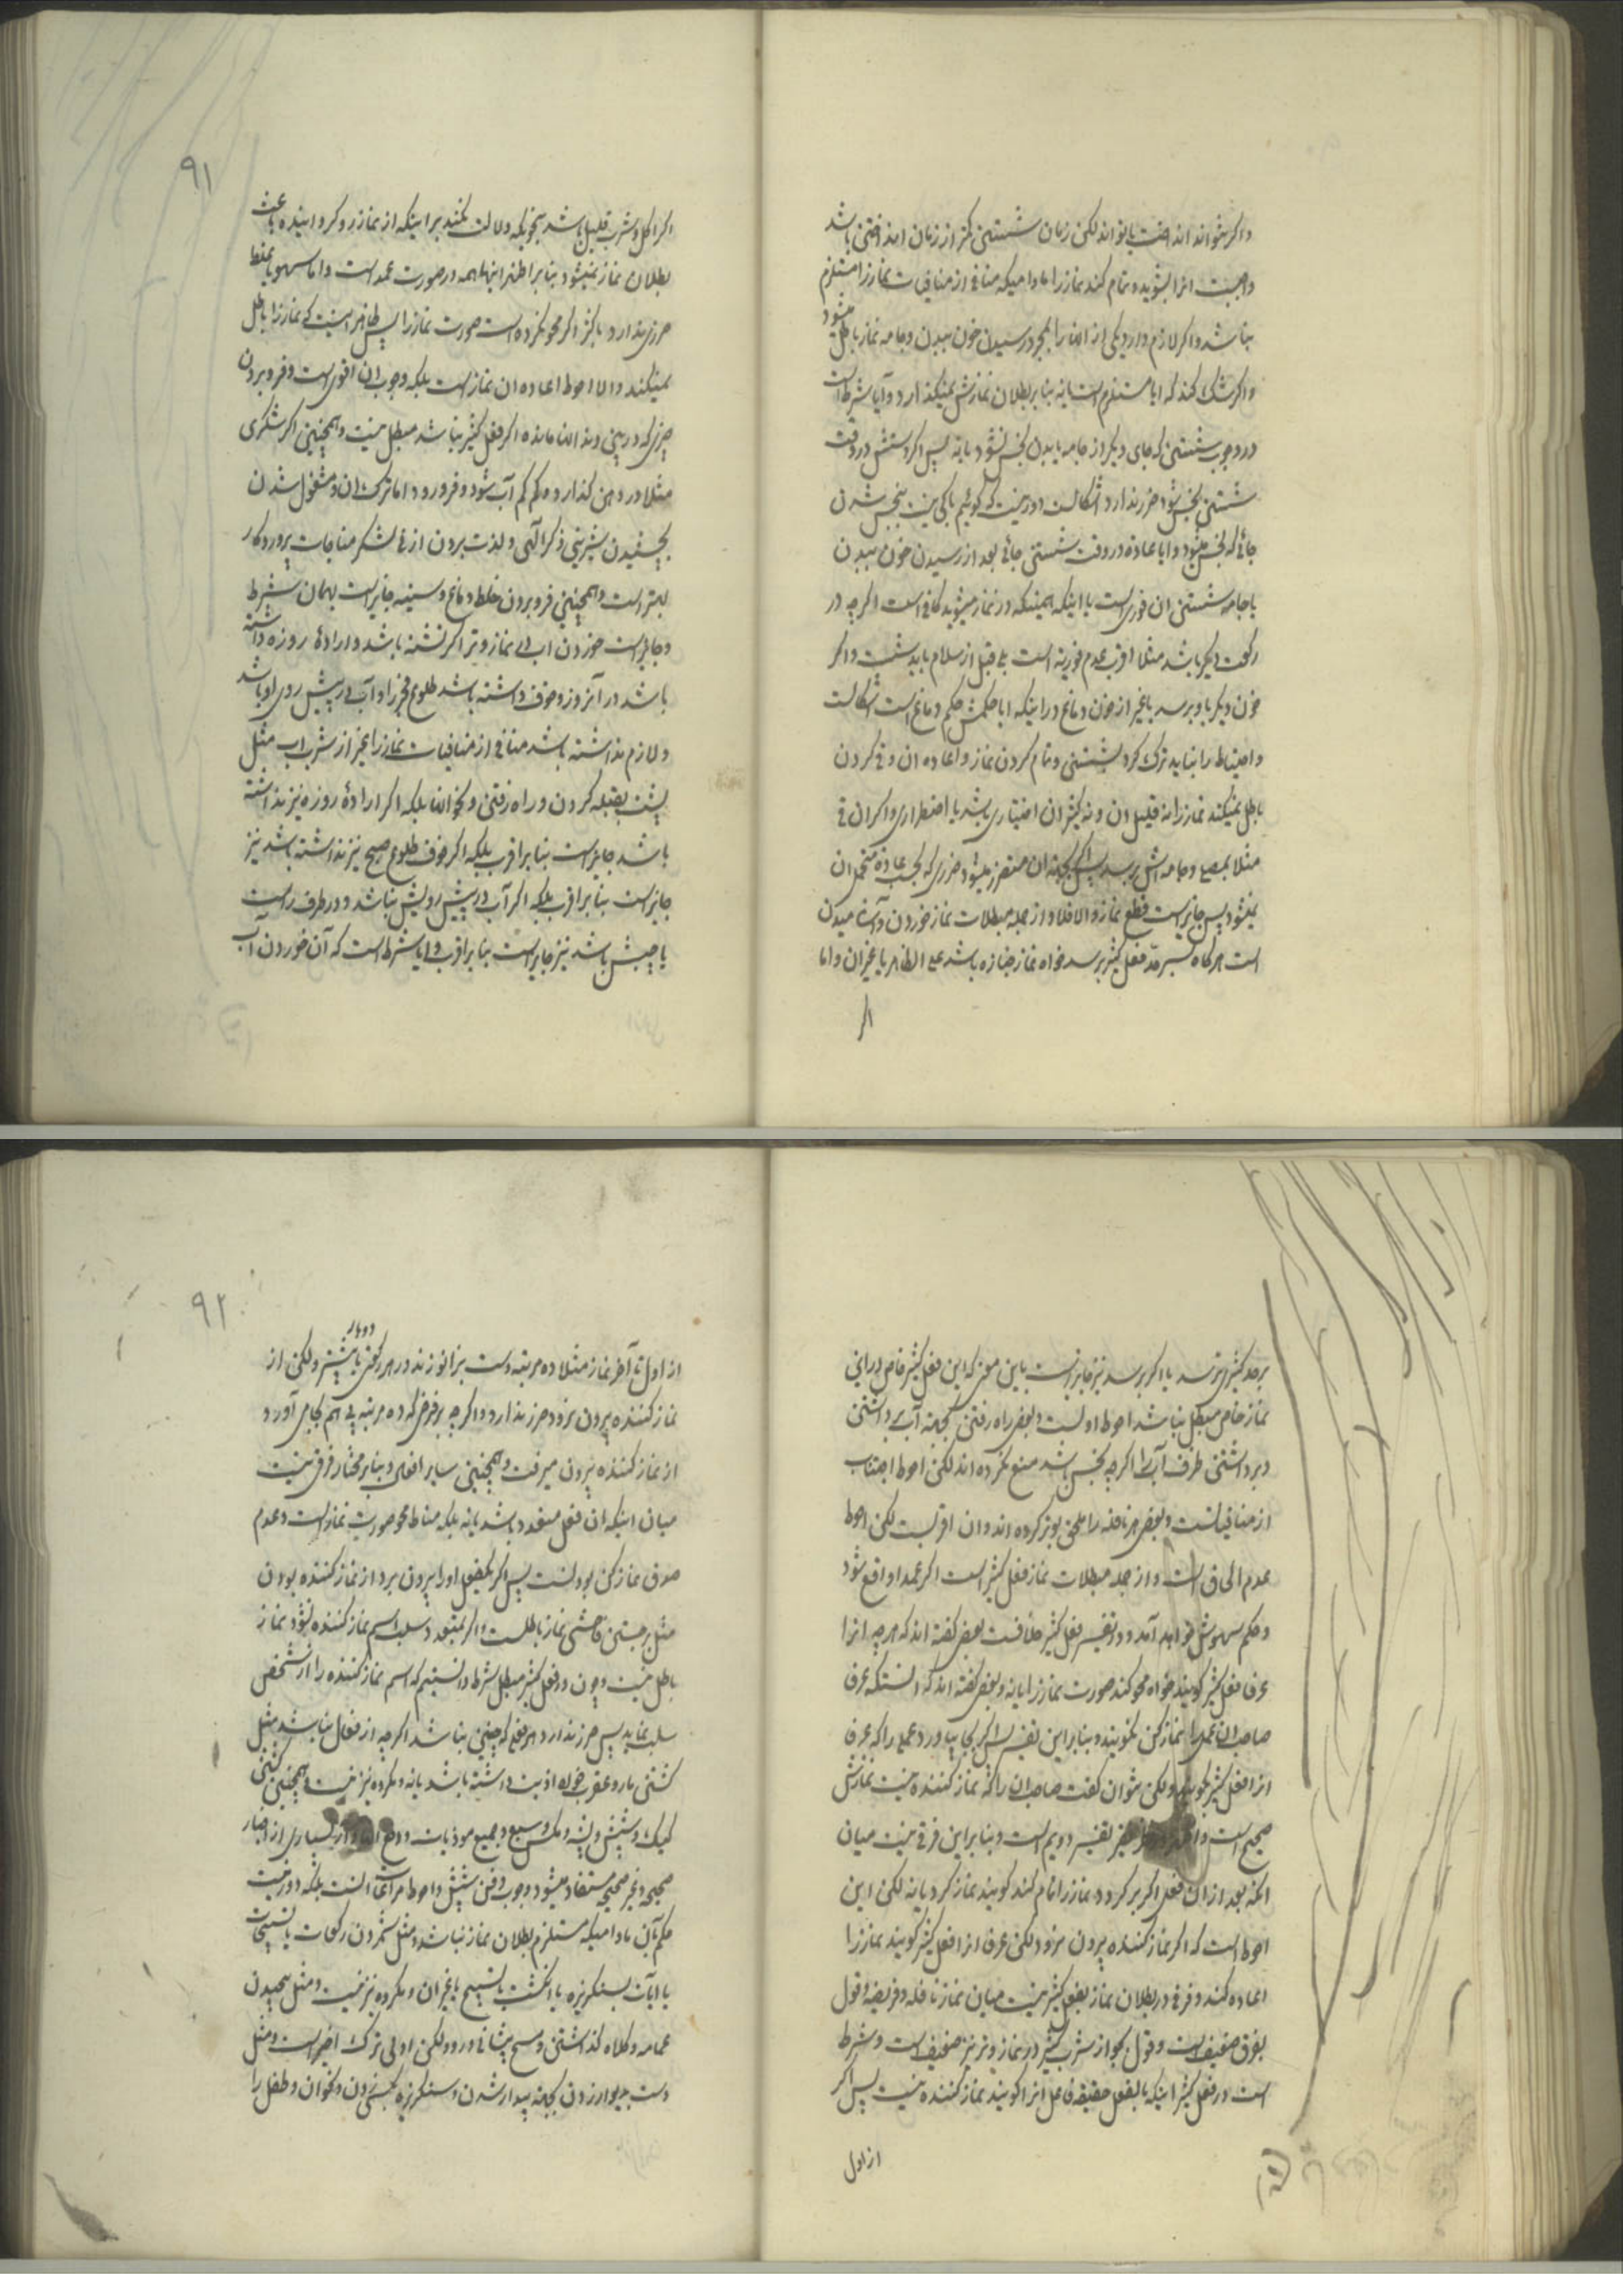 و اگر بتواند انداخت یا تواند لکن زمان شستن کمتر از زمان انداختن باشد
واجبست انرا بشوید و تمام کند نماز را مادامیکه منافی از منافیات نماز را مستلزم
نباشد و اگر لازم دارد یکی از انها را بمجرد رسیدن خون ببدن و جامه نماز باطل میشود
و اگر شک کند که ایا مستلزم است یا نه بنا بر بطلان نمازش نمیگذارد و آیا شرط است
در وجوب شستن که جای دیگر از جامه یا بدن نجس نشود یا نه پس اگر دستش در وقت
شستن نجس شود ضرر ندارد اشکالست دور نیست که گوئیم باکی نیست بنجس شدن
جائی که نجس میشود و ایا عادة در وقت شستن جائی بعد از رسیدن خون ببدن
یا جامه شستن ان فوری است یا اینکه همینکه در نماز میشوید کافی است اگرچه در
رکعت دیگر باشد مثلا اقرب عدم فوریة است بلی قبل از سلام باید شست و اگر
خون دیگر باو برسد یا غیر از خون دماغ در اینکه ایا حکمش حکم دماغ است اشکالست
و احتیاط را نباید ترک کرد بشستن و تمام کردن نماز و اعاده ان و قی کردن
باطل نمیکند نماز را نه قلیل ان و نه کثیر ان اختیاری باشد یا اضطراری و اگر ان قی
مثلا بمصلی و جامه اش برسد پس اگر بجهة ان متضرر میشود ضرری که بحسب عادة متحمل ان
نمیشود پس جایز است قطع نماز و الا فلا و از جمله مبطلات نماز خوردن و آشامیدن
است هرگاه بسرحد فعل کثیر برسد خواه نماز جنازه باشد علی الظاهر یا غیر ان و اما
اگر
۹۱
اگر اکل و شرب قلیل باشد بنحویکه دلالت نکند بر اینکه از نماز رو گردانیده باعث
بطلان نماز نمیشود بنا بر اظهر اینها همه در صورت عمد است و اما سهو یا غلط
ضرری ندارد یا کثیر اگر محو نکرده است صورت نماز را پس ظاهر اینست که نماز را باطل
نمیکند و الا احوط اعاده ان نماز است بلکه وجوب ان اقوی است و فرو بردن
چیزی که در بینی و دندانها مانده اگر فعل کثیر نباشد مبطل نیست و همچنین اگر شکری
مثلا در دهن گذارد و کم کم آب شود و فرو رود اما ترک ان و مشغول شدن
بچشیدن شیرینی ذکر الهی و لذت بردن از نی شکر مناجات پروردگار
بهتر است و همچنین فرو بردن خلط دماغ و سینه جایز است بهمان شرط
و جایز است خوردن اب در نماز وتر اگر تشنه باشد و ارادهٔ روزه داشته
باشد در آنروز و خوف داشته باشد طلوع فجر را و آب در پیش روی او باشد
و لازم نداشته باشد منافی از منافیات نماز را بغیر از شرب اب مثل
پشت بقبله کردن و راه رفتن و نحو انها بلکه اگر ارادهٔ روزه نیز نداشته
باشد جایز است بنا بر اقرب بلکه اگر خوف طلوع صبح نیز نداشته باشد نیز
جایز است بنا بر اقرب بلکه اگر آب در پیش رویش نباشد و در طرف راست
یا چپش باشد نیز جایز است بنا بر اقرب و ایا شرط است که آن خوردن آب
بحد کثیر نرسد یا اگر برسد نیز جایز است باین معنی که این فعل کثیر خاص در این
نماز خاص مبطل نباشد احوط اولست و بعضی راه رفتن بجهة آب برداشتن
و برداشتن ظرف آب را اگرچه نجس باشد منع نکرده اند لکن احوط اجتناب
از منافیاتست و بعضی هر نافله را ملحق بوتر کرده اند و ان اقربست لکن احوط
عدم الحاق است و از جمله مبطلات نماز فعل کثیر است اگر عمدا واقع شود
و حکم سهوش خواهد آمد و در تفسیر فعل کثیر خلافست بعضی گفته اند که هرچه انرا
عرفا فعل کثیر گویند خواه محو کند صورت نماز را یا نه و بعضی گفته اند که انستکه عرف
صاحب ان عمل را نماز کن نگویند و بنابراین تفسیر پس اگر بجا بیاورد عملی را که عرف
انرا فعل کثیر بگویند و لکن نتوان گفت صاحب ان را که نماز کننده نیست نمازش
صحیح است تفسیر دویم است و بنابراین فرقی نیست میان
انکه بعد از ان فعل اگر بر گردد و نماز را تمام کند گویند نماز کرد یا نه لکن این
احوط است که اگر نماز کننده بیرون نرود لکن عرف انرا فعل کثیر گویند نماز را
اعاده کند و فرقی در بطلان نماز بفعل کثیر نیست میان نماز نافله و فریضه و قول
بفرق ضعیف است و قول بجواز شرب کثیر در نماز وتر نیز ضعیف است و شرط
است در فعل کثیر اینکه بالفعل حقیقة فاعل انرا گویند نماز کننده نیست پس اگر
از اول
۹۲
از اول تا آخر نماز مثلا ده مرتبه دست بزانو زند در هر رکعتی دوبار یا بیشتر و لکن از
نماز کننده بیرون نرود ضرر ندارد و اگرچه بر فرضی که ده مرتبه پی هم بجا می آورد
از نماز کننده بیرون میرفت و همچنین سایر افعال و بنا بر مختار فرقی نیست
میان اینکه ان فعل متعدد باشد یا نه بلکه مناط محو صورت نماز است و عدم
صدق نماز کن بودنست پس اگر یکفعل او را بیرون برد از نماز کننده بودن
مثل برجستن فاحشی نماز باطلست و اگر بمتعدد سلب اسم نماز کننده نشود نماز
باطل نیست و چون در فعل کثیر مبطل شرط دانستیم که اسم نماز کننده را از شخص
سلب نماید پس ضرر ندارد هر فعلی که چنین نباشد اگرچه از فعال نباشد مثل
کشتن مار و عقرب خواه اذیت داشته باشد یا نه و مکروه نیز نیست و همچنین کشتن
کیک و شپش و پشه و مگس و سبع و جمیع موذیات و دفع بسیاری از اخبار
صحیحه و غیر صحیحه مستفاد میشود وجوب دفن شپش و احوط مراعات انست بلکه دور نیست
حکم بآن مادامیکه مستلزم بطلان نماز نباشد و مثل شمردن رکعات یا تسبیحات
یا ایات بسنگریزه یا انگشت یا تسبیح یا غیر ان و مکروه نیز نیست و مثل پیچیدن
عمامه و کلاه گذاشتن و مسح پیشانی و رو و لکن اولی ترک اخیر است و مثل
دست بدیوار زدن بجهة بیدار شدن و سنگریزه بکسی زدن و نحو ان و طفل را